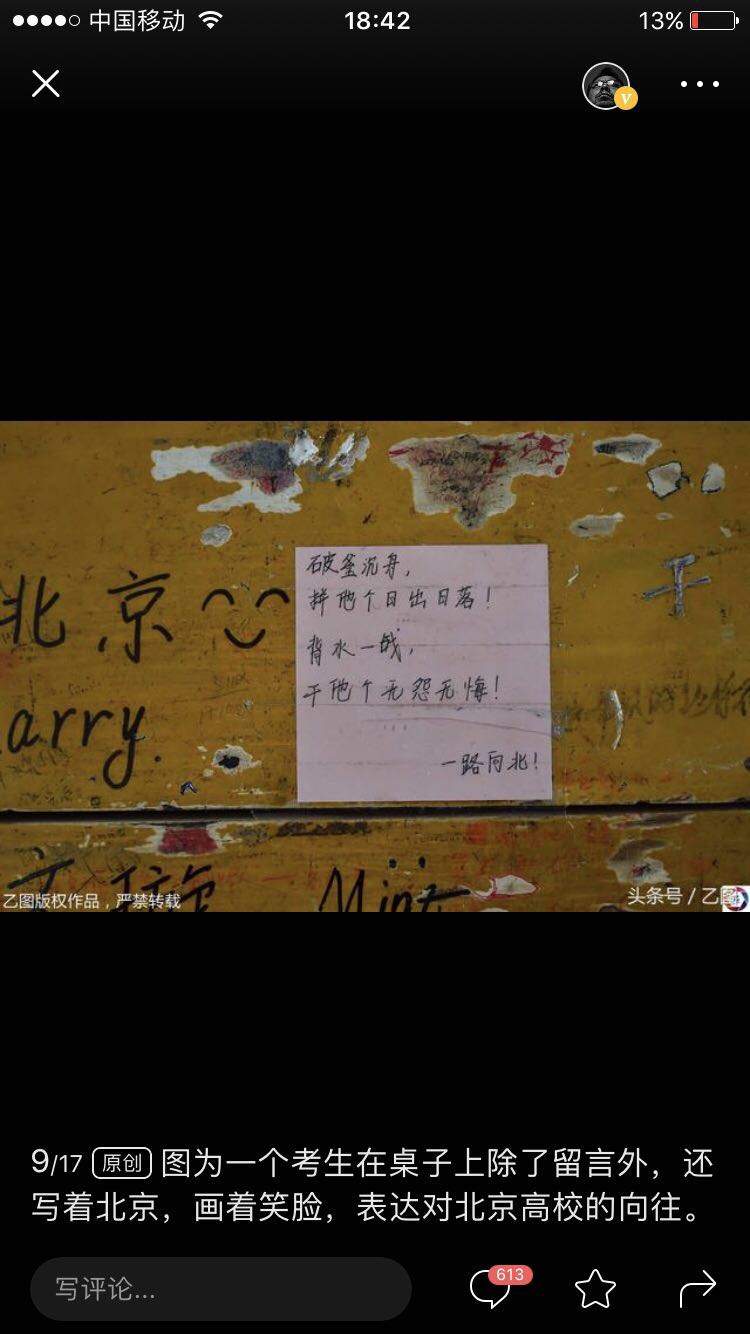 中国移动
18:42
13%
V
北京
干
arry.
破釜沉舟，
拼他个日出日落！
背水一战，
干他个无怨无悔！
一路向北！
Mint
乙图版权作品，严禁转载
头条号 / 乙图
9/17 原创 图为一个考生在桌子上除了留言外，还
写着北京，画着笑脸，表达对北京高校的向往。
写评论...
613